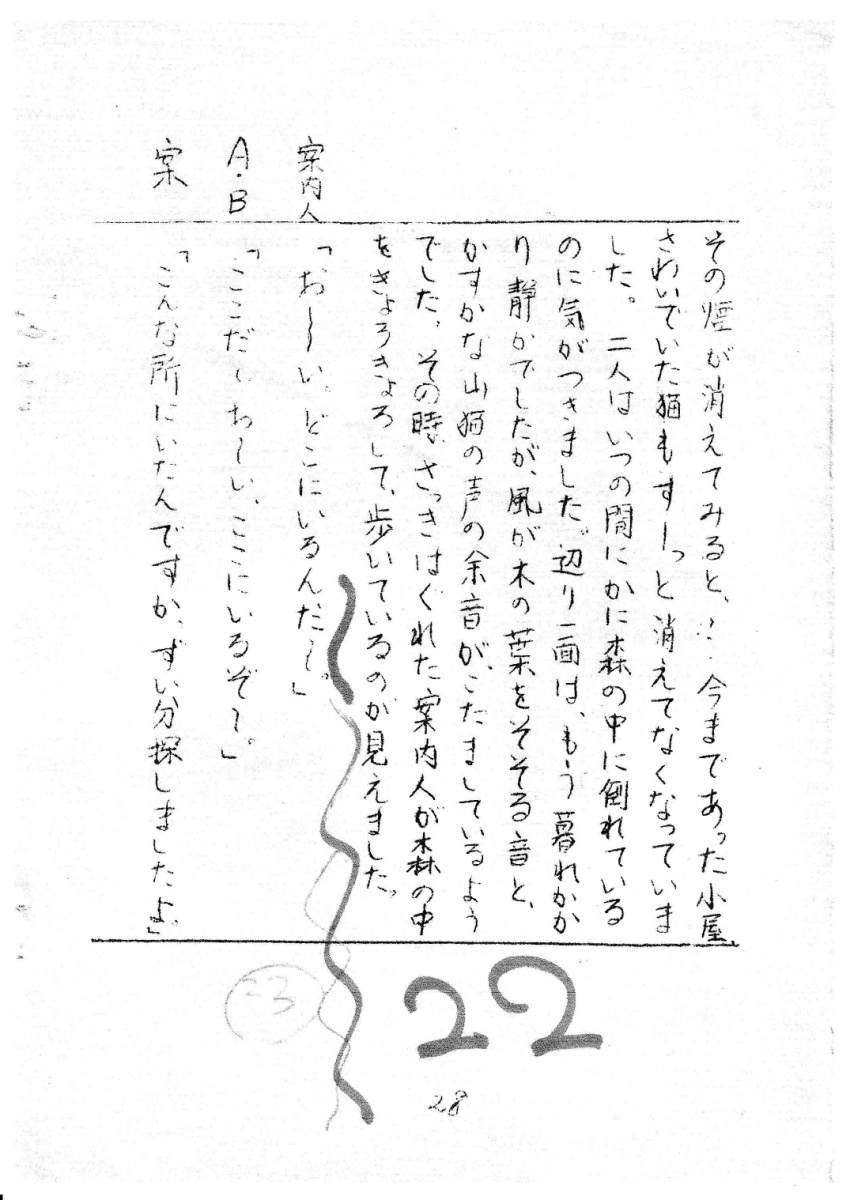 その煙が消えてみると、… 今まであった小屋、
さわいでいた猫もすーっと消えてなくなっていま
した。 二人はいつの間にかに森の中に倒れている
のに気がつきました。辺り一面は、もう暮れかか
り静かでしたが、風が木の葉をそそる音と、
かすかな山猫の声の余音が、こだましているよう
でした。その時、さっきはぐれた案内人が森の中
をきょろきょろして、歩いているのが見えました。
案内人 「お〜い。どこにいるんだ〜。」
A・B 「ここだ。お〜い、ここにいるぞ〜。」
案 「こんな所にいたんですか、ずい分探しましたよ。」
22
23
28